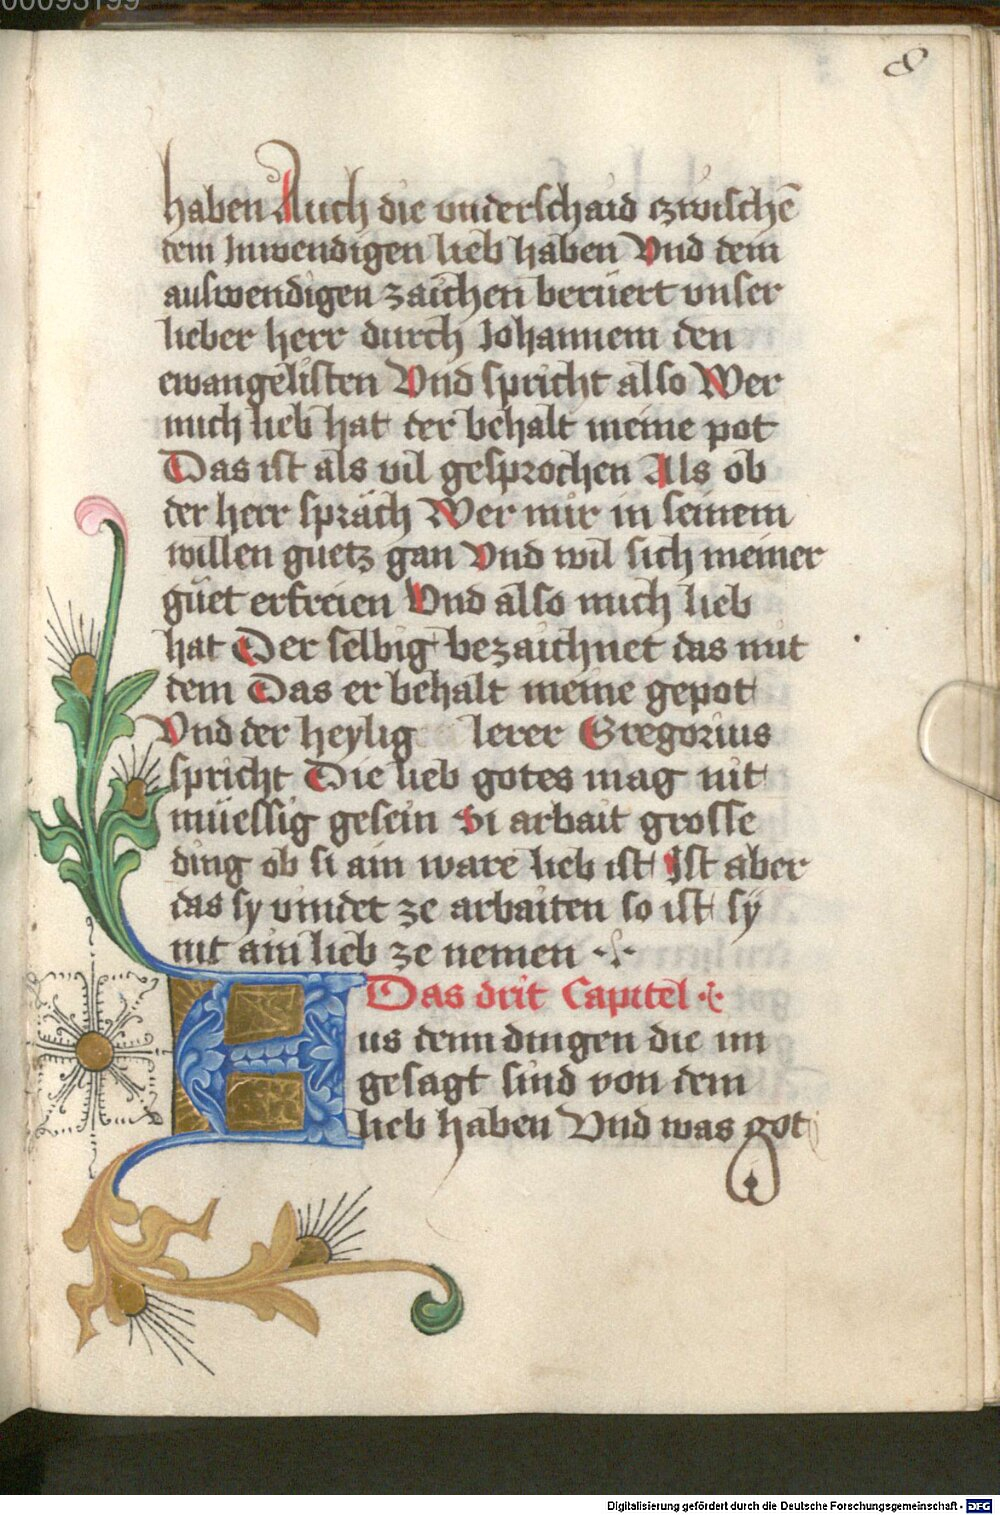 00093199
8
haben Auch die vnderschaid czwischē
dem Inwendigen lieb haben Vnd dem
auswendigen zaichen berüert vnser
lieber herr durch Johannem den
ewangelisten Vnd spricht also Wer
mich lieb hat der behalt meine pot
Das ist als vil gesprochen Als ob
der herr spräch Wer mir in seinem
willen guetz gan Vnd wil sich meiner
güet erfreien Vnd also mich lieb
hat Der selbig bezaichnet das mit
dem Das er behalt meine gepot
Vnd der heylig lerer Gregorius
spricht Die lieb gotes mag nit
müessig gesein Si arbait grosse
ding ob si ain ware lieb ist Ist aber
das sy vindet ze arbaiten so ist sÿ
nit ain lieb ze nemen
Das drit Capitel
Aus denn dingen die im
gesagt sind von dem
lieb haben Vnd was got
Digitalisierung gefördert durch die Deutsche Forschungsgemeinschaft - DFG